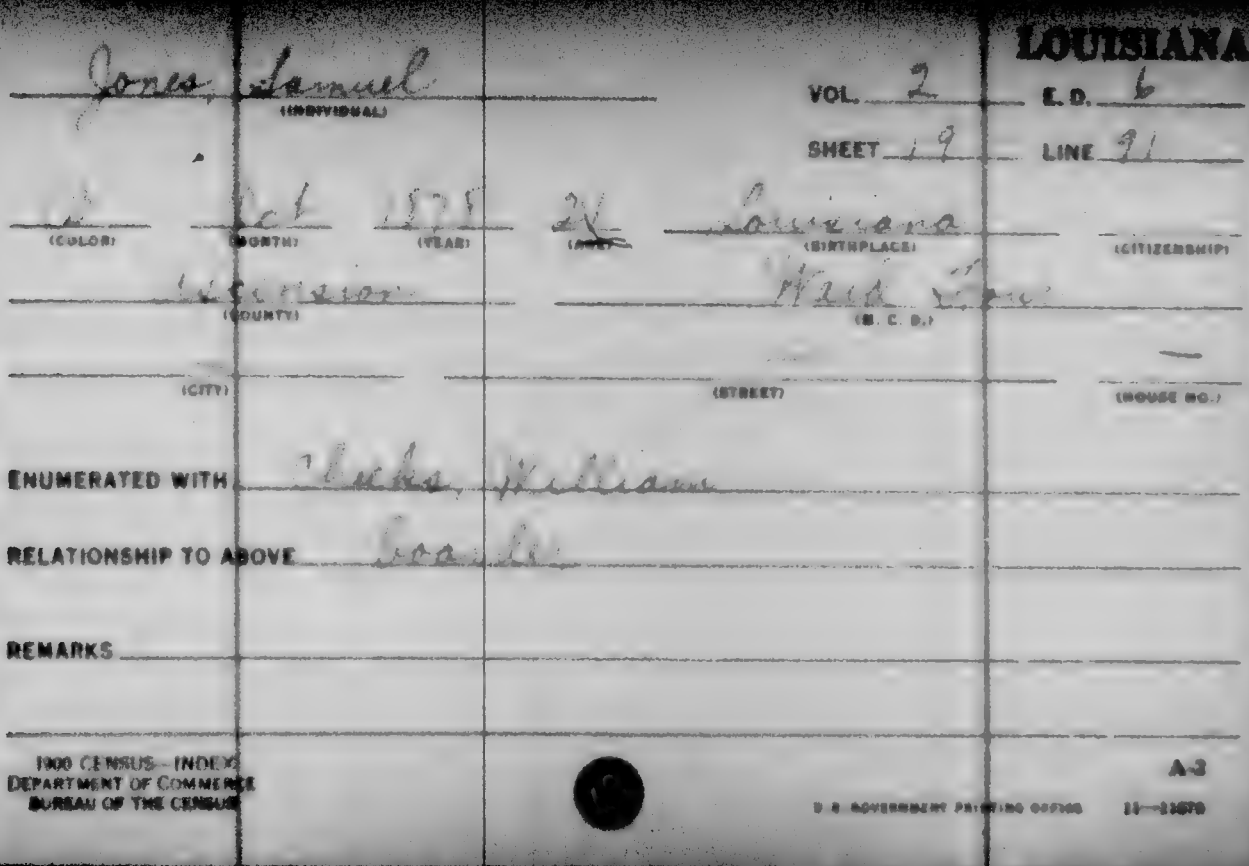 LOUISIANA
Jones, Samuel
(INDIVIDUAL)
VOL. 2 E. D. 6
SHEET 19 LINE 91
B Oct Louisiana
(COLOR) (MONTH) (YEAR) (AGE) (BIRTHPLACE) (CITIZENSHIP)
Ascension Ward
(COUNTY) (M. C. D.)
— — —
(CITY) (STREET) (HOUSE NO.)
ENUMERATED WITH William
RELATIONSHIP TO ABOVE boarder
REMARKS
1900 CENSUS—INDEX
DEPARTMENT OF COMMERCE
BUREAU OF THE CENSUS
A-2
U. S. GOVERNMENT PRINTING OFFICE